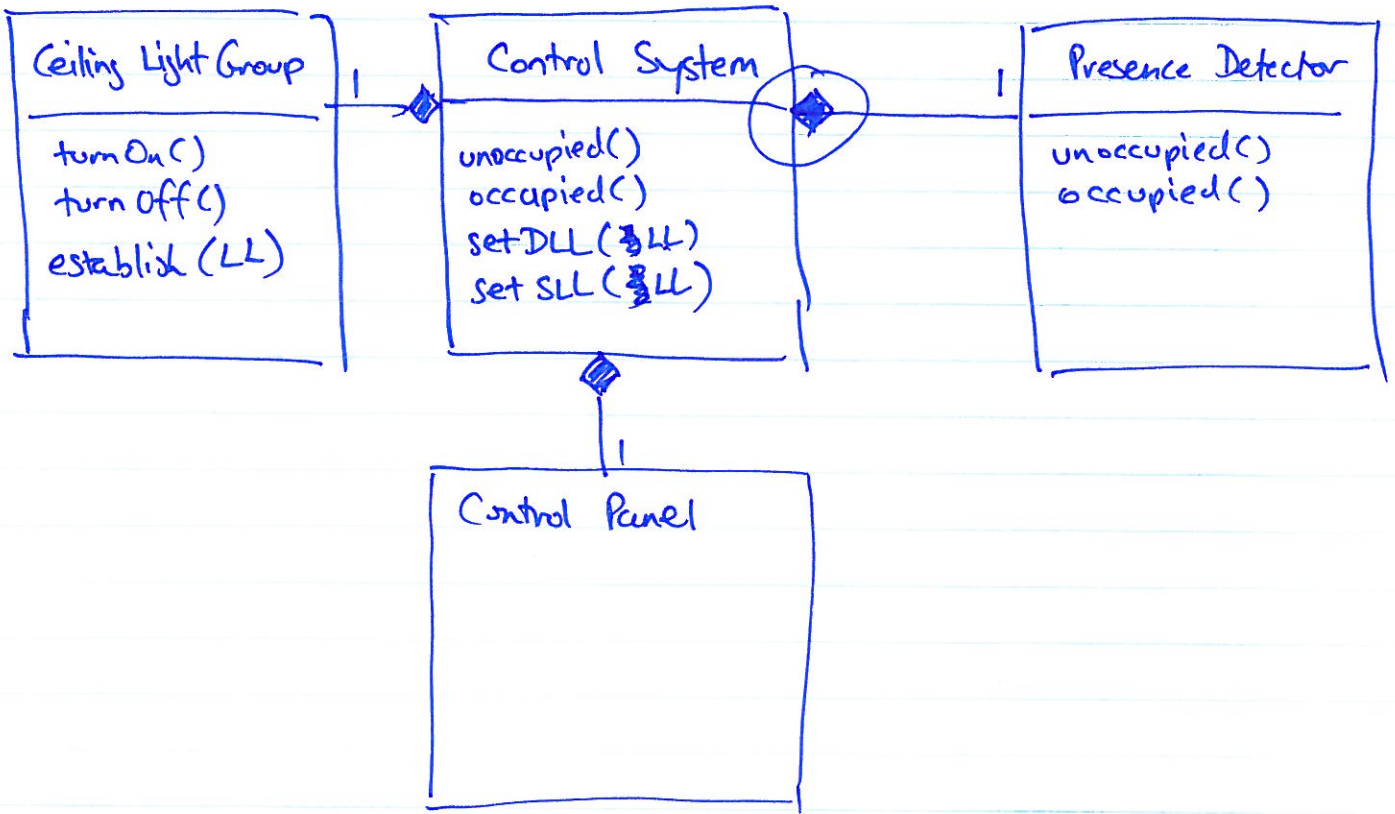 Ceiling Light Group
turnOn()
turnOff()
establish(LL)
1
Control System
unoccupied()
occupied()
setDLL(LL)
setSLL(LL)
1
Presence Detector
unoccupied()
occupied()
1
Control Panel